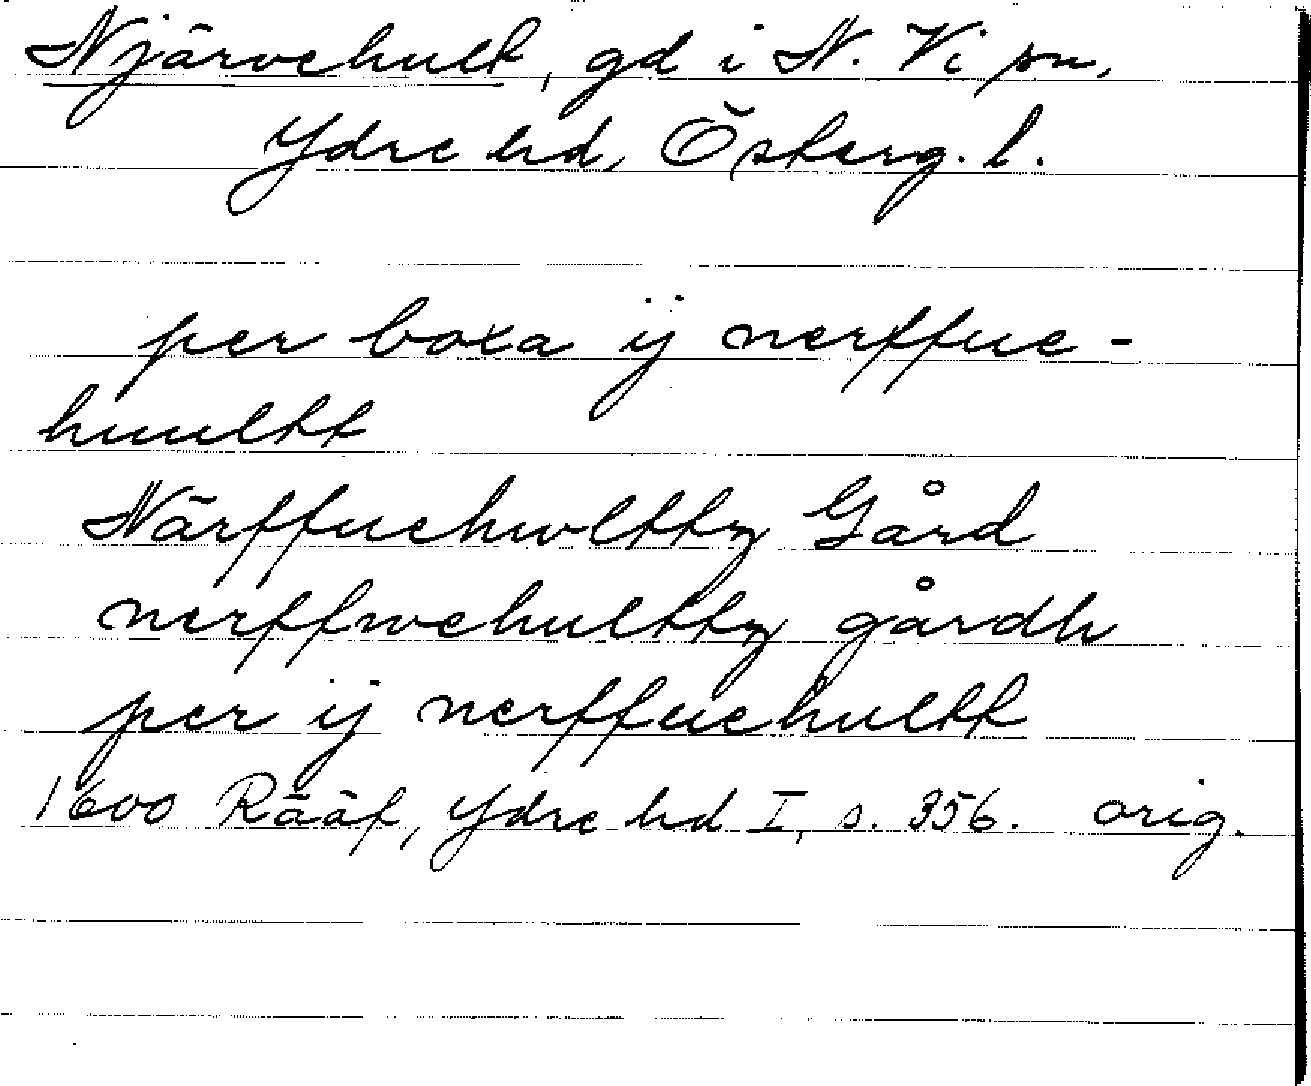 Njärvehult, gd i N. Vi sn,
Ydre hd, Österg. l.
per boxa ij nerffue-
huultt
Närffuehwlttz Gård
nerffwehulttz gårdh
per ij nerffuehultt
1600 Rääf, Ydre hd I, s. 356. orig.